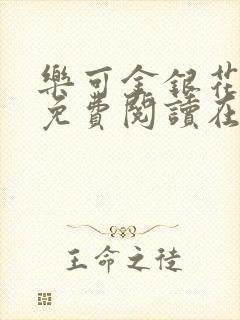 樂可金銀花
免費閱讀在
王命之徒